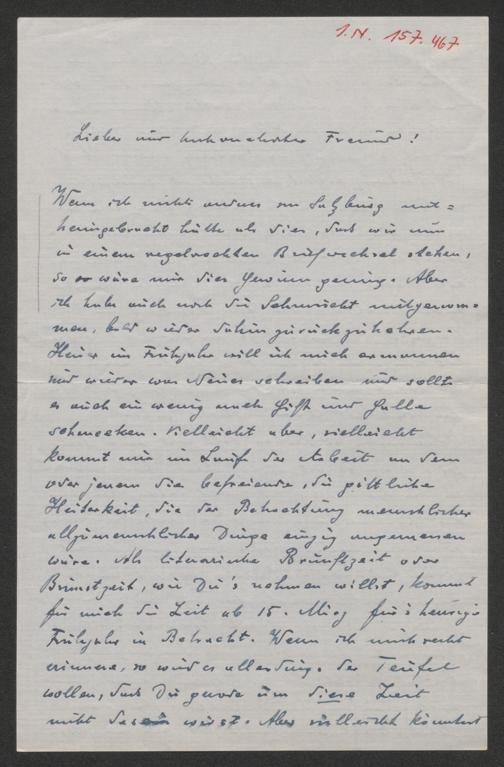 I.N. 157.467
Lieber und hochverehrter Freund!
Wenn ich nichts anderes von Salzburg mit=
heimgebracht hätte als dies, daß wir nun
in einem regelrechten Briefwechsel stehen,
so wäre mir dies Gewinn genug. Aber
ich habe auch noch die Sehnsucht mitgenom=
men, bald wieder dahin zurückzukehren.
Heuer im Frühjahr will ich mich ermannen
und wieder was Neues schreiben und sollte
es auch ein wenig nach Gift und Galle
schmecken. Vielleicht aber, vielleicht
kommt mir im Laufe der Arbeit an dem
oder jenem die befreiende, die göttliche
Heiterkeit, die der Betrachtung menschlicher
allzumenschlicher Dinge einzig angemessen
wäre. Als literarische Brunftzeit oder
Brunstzeit, wie Du's nehmen willst, kommt
für mich die Zeit ab 15. März für's heurige
Frühjahr in Betracht. Wenn ich mich recht
erinnere, so wird es allerdings der Teufel
wollen, daß Du gerade um diese Zeit
nicht da wirst. Aber vielleicht könntest